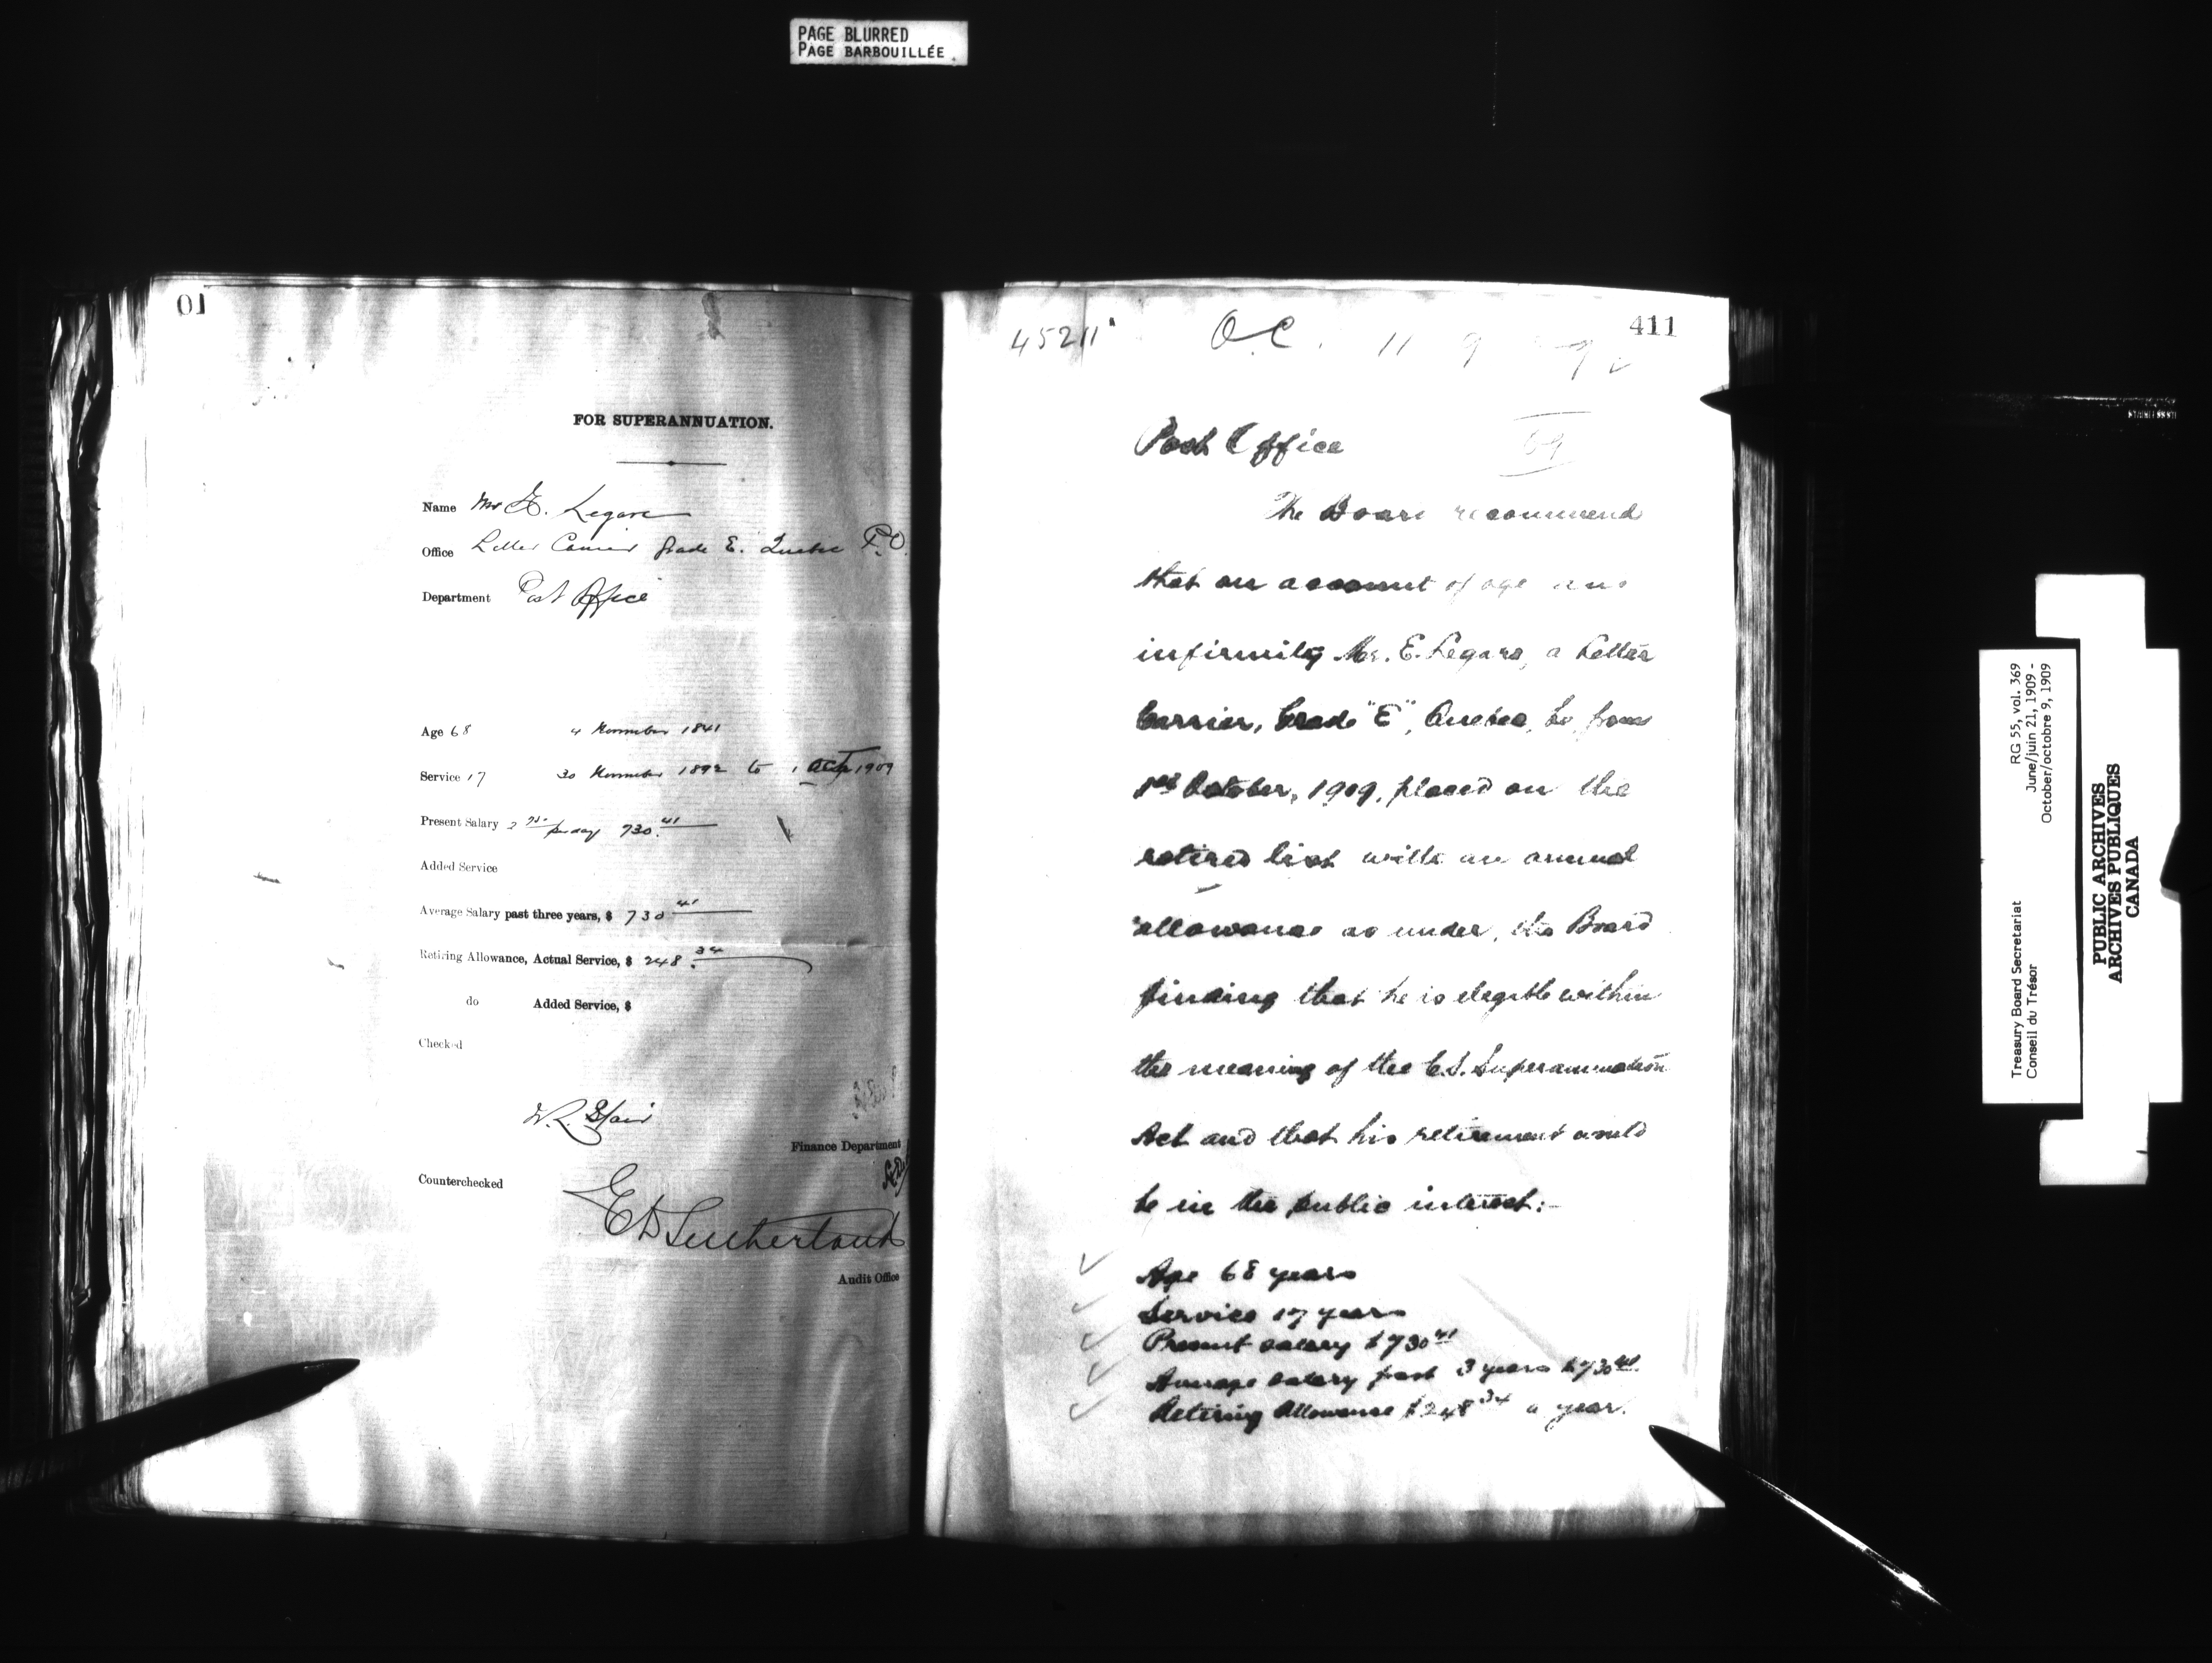 PAGE BLURRED
PAGE BARBOUILLÉE
01
FOR SUPERANNUATION.
Name Mr E. Legare
Office Letter Carrier Grade E. Quebec P.O.
Department Post Office
Age 68 4 November 1841
Service 17 30 November 1892 to 1 Oct 1909
Present Salary per day 730.41
Added Service
Average Salary past three years, $ 730 41
Retiring Allowance, Actual Service, $ 248.34
do Added Service, $
Checked
W.L. Blair
Finance Department
Counterchecked
E D Sutherland
Audit Office
45211 O.C. 11 9 9
411
Post Office 69
The Board recommend
that on account of age and
infirmity Mr. E. Legare, a Letter
Carrier, Grade "E", Quebec, be, from
1st October, 1909, placed on the
retired list with an annual
allowance as under, the Board
finding that he is elegible within
the meaning of the C.S. Superannuation
Act and that his retirement would
be in the public interest:-
Age 68 years
Service 17 years
Present salary $730 41
Average salary past 3 years $730 41
Retiring Allowance $248 34 a year.
Treasury Board Secretariat
Conseil du Trésor
RG 55, vol. 369
June/juin 21, 1909 -
October/octobre 9, 1909
PUBLIC ARCHIVES
ARCHIVES PUBLIQUES
CANADA